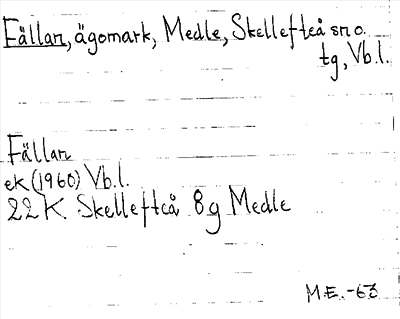 Fällan, ägomark, Medle, Skellefteå sn o.
tg, Vb.l.
Fällan
ek (1960) Vb.l.
22 K Skellefteå 8g Medle
M.E. -63